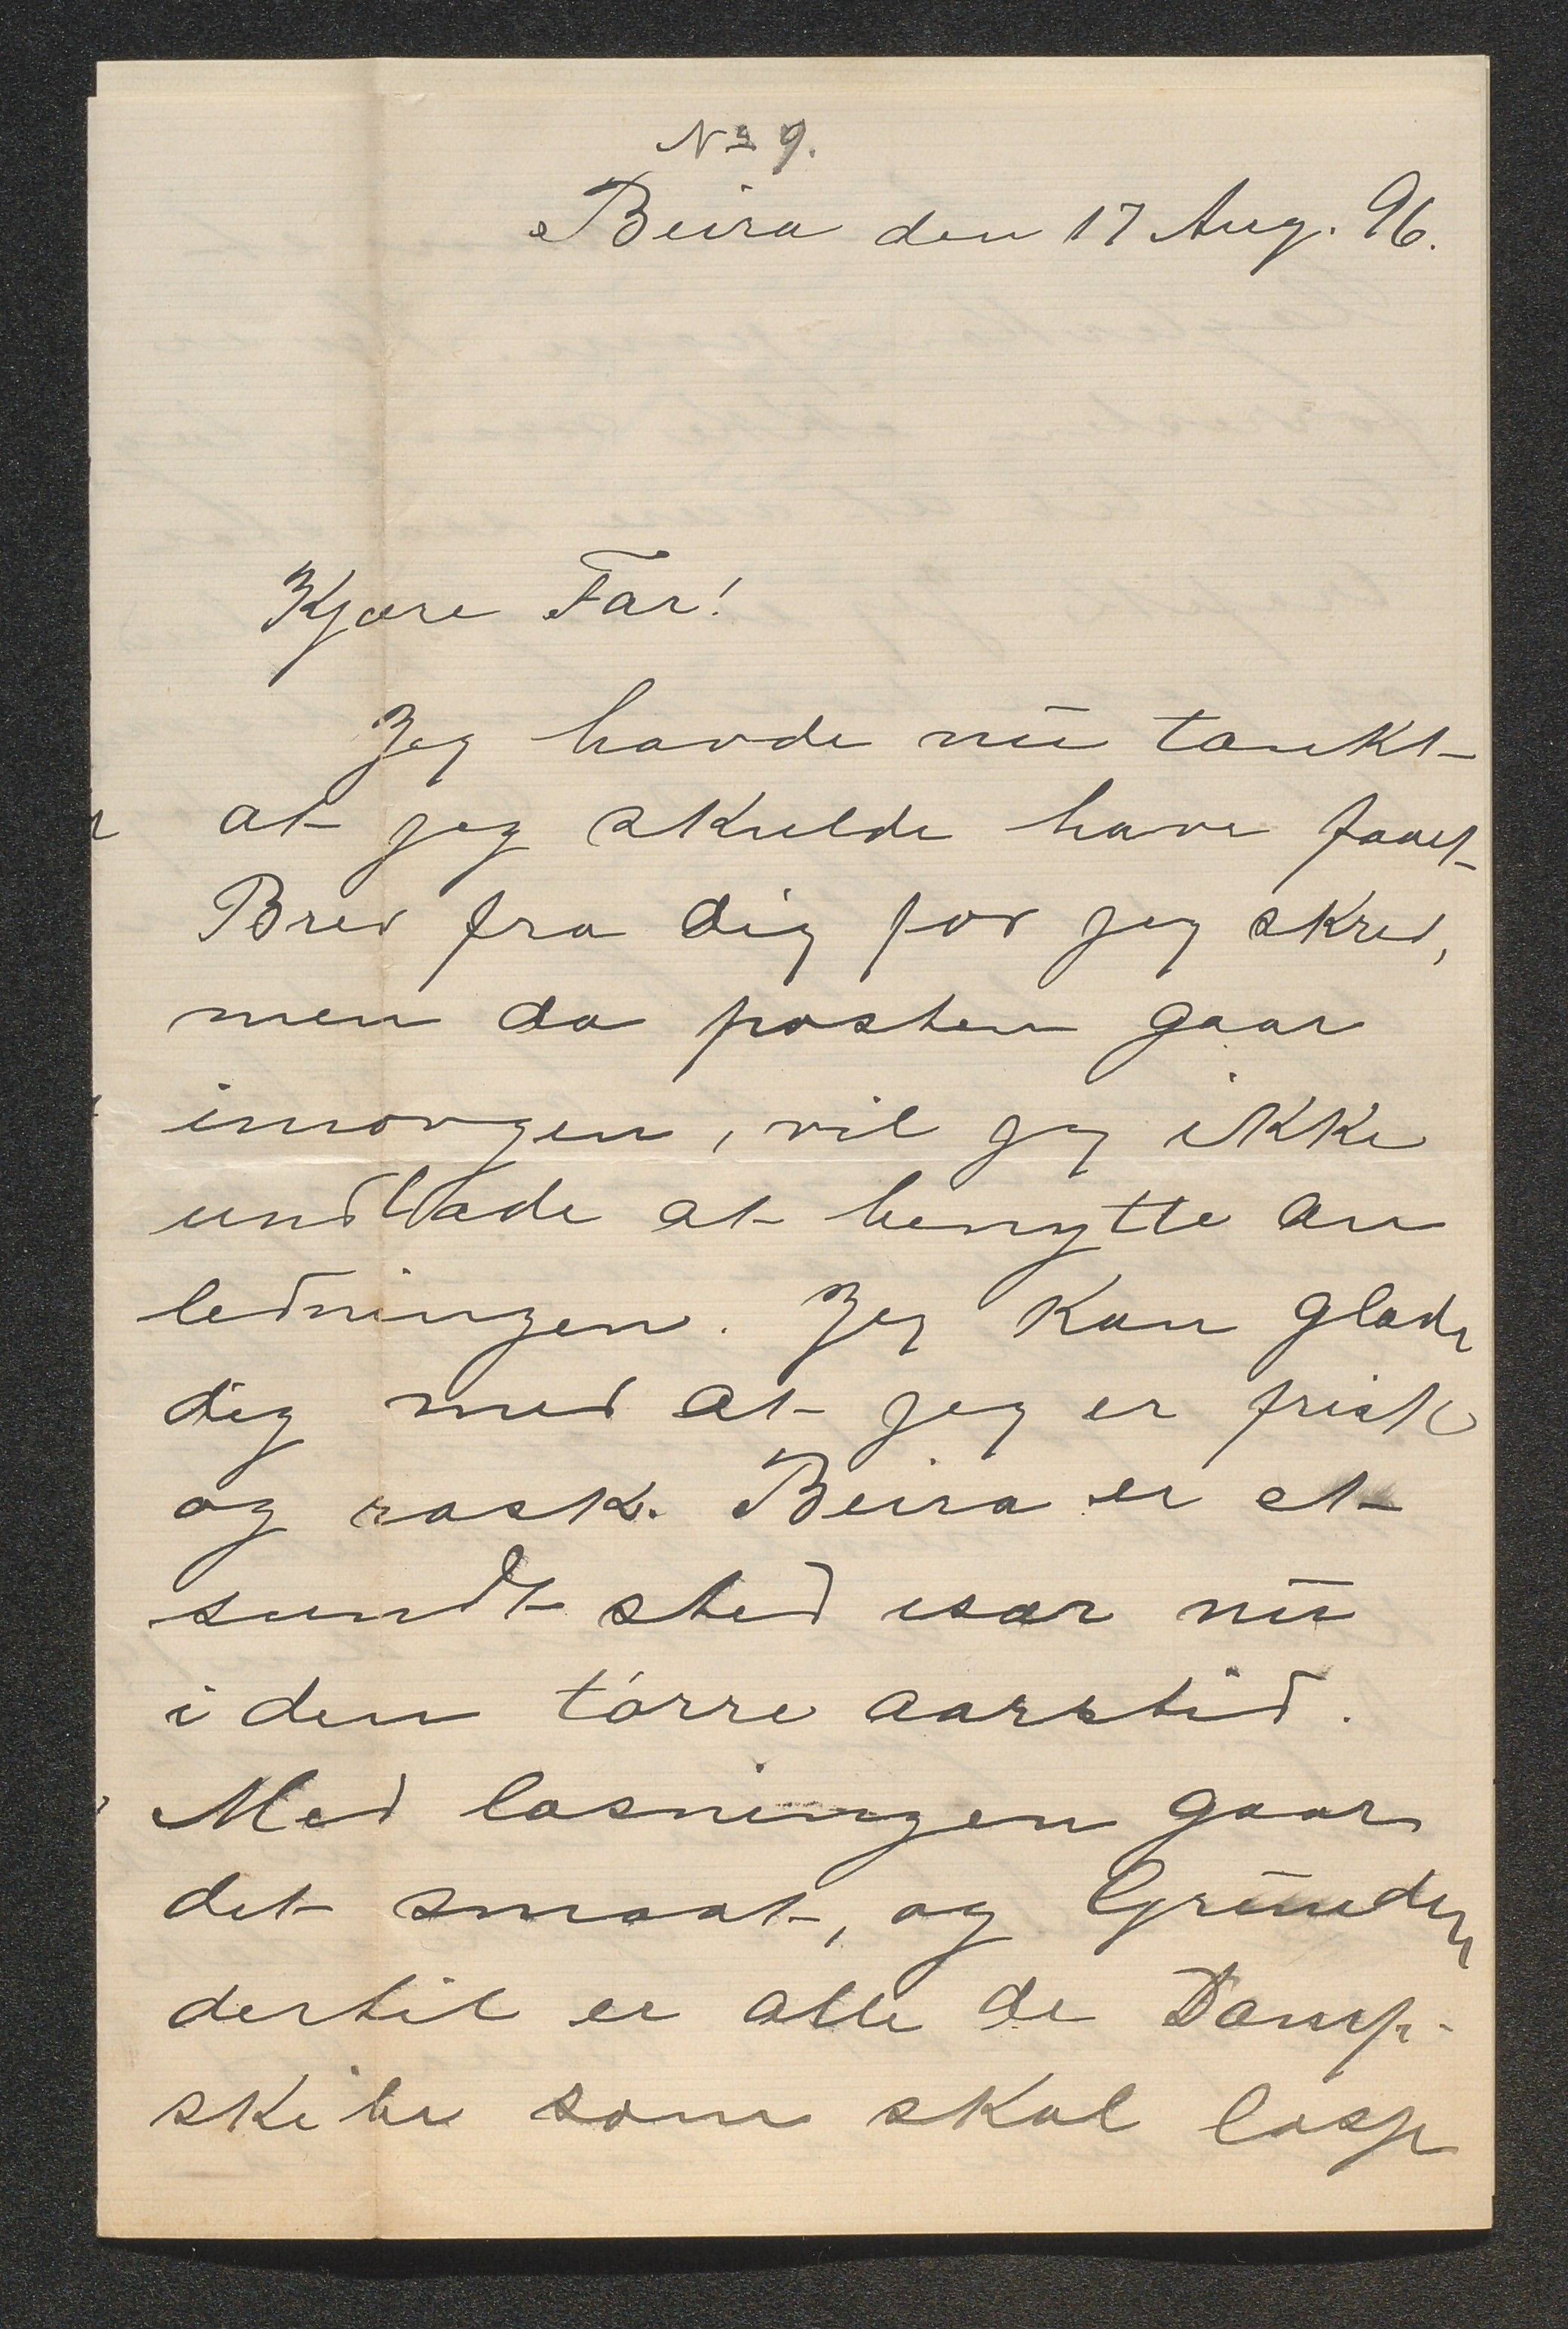 No 9.
Beira den 17 Aug. 96.
Kjære Far!
Jeg havde nu tænkt
at jeg skulde have faaet
Brev fra dig før jeg skrev,
men da posten gaar
imorgen, vil jeg ikke
undlade at benytte an
ledningen. Jeg kan glæde
dig med at jeg er frisk
og rask. Beira er et
sundt sted især nu
i den tørre aarstid.
Med losningen gaar
det smaat, og Grunden
dertil er alle de Damp-
skibe som skal losse